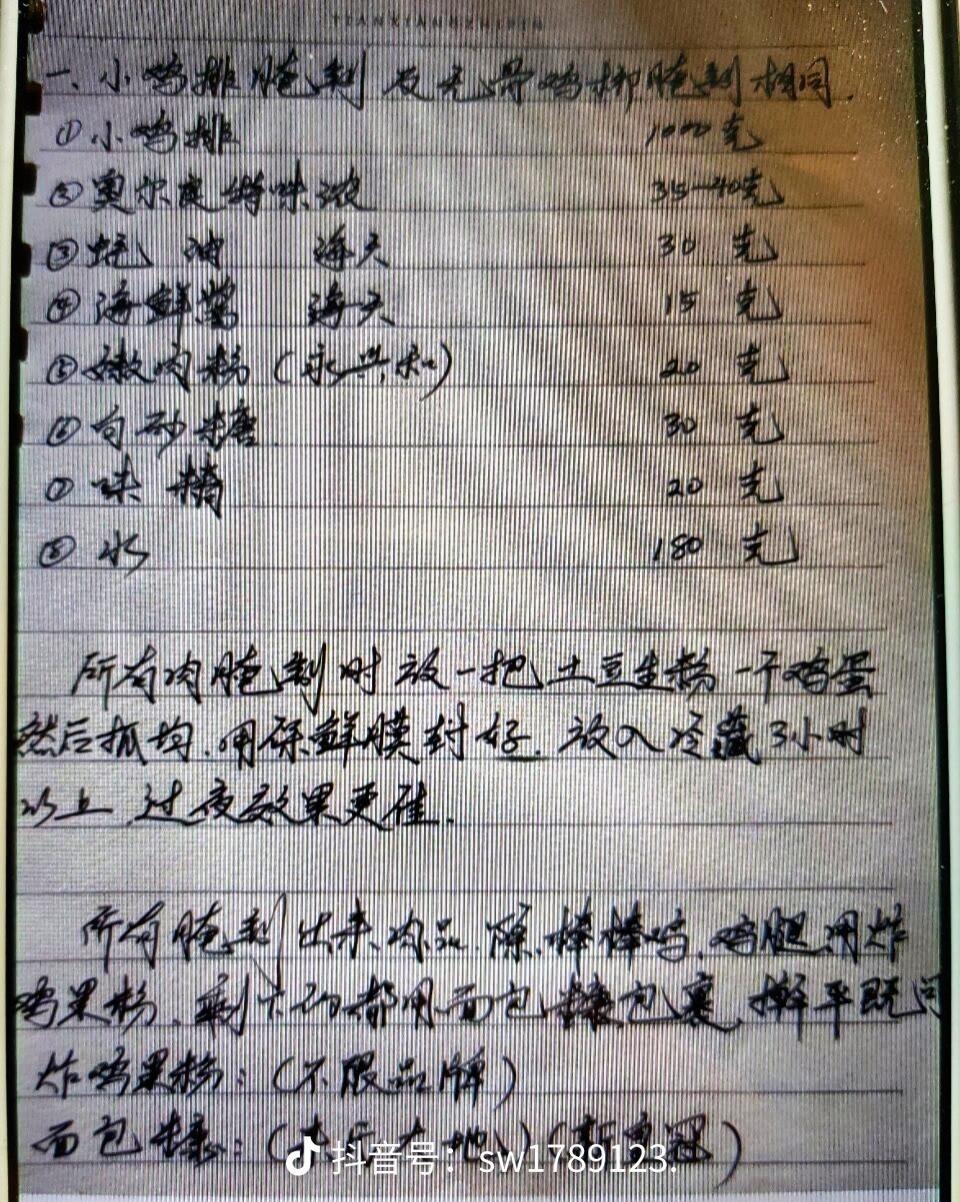 TIANXIANGZHIPIN
一、小鸡排腌制及无骨鸡柳腌制相同.
①小鸡排 1000克
②奥尔良特味浓 35-40克
③蚝油 海天 30克
④海鲜酱 海天 15克
⑤嫩肉粉(永兴和) 20克
⑥白砂糖 30克
⑦味精 20克
⑧水 180克
所有肉腌制时放一把土豆生粉一个鸡蛋
然后抓均.用保鲜膜封好.放入冷藏3小时
以上,过夜效果更佳.
所有腌制出来肉品除棒棒鸡,鸡腿用炸
鸡裹粉.剩下的都用面包糠包裹.擀平既可
炸鸡裹粉:(不限品牌)
面包糠:(
抖音号:sw1789123.